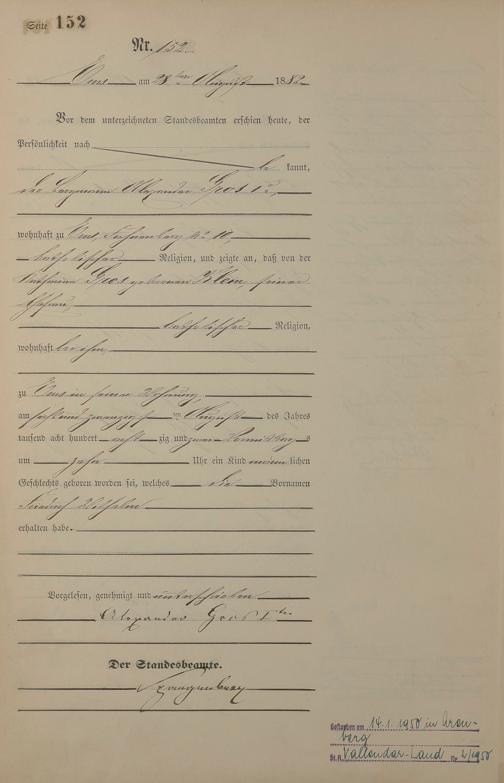 Seite 152
Nr. 152
Ems am 28ten August 1882
Vor dem unterzeichneten Standesbeamten erschien heute, der
Persönlichkeit nach
be kannt,
der Bergmann Alexander Gros
wohnhaft zu Ems, No 10,
katholischer Religion, und zeigte an, daß von der
Gros geborenen Klein, seiner
Ehefrau,
katholischer Religion,
wohnhaft bei ihm,
zu Ems in seiner Wohnung,
am sechs und zwanzigsten August des Jahres
tausend acht hundert acht zig und zwei Vormittags
um zehn Uhr ein Kind männlichen
Geschlechts geboren worden sei, welches die Vornamen
Friedrich Wilhelm
erhalten habe.
Vorgelesen, genehmigt und unterschrieben
Alexander Gros
Der Standesbeamte.
Gestorben am 14.1.1950 in Aren-
berg
St.A. Vallendar-Land Nr. 2/1950